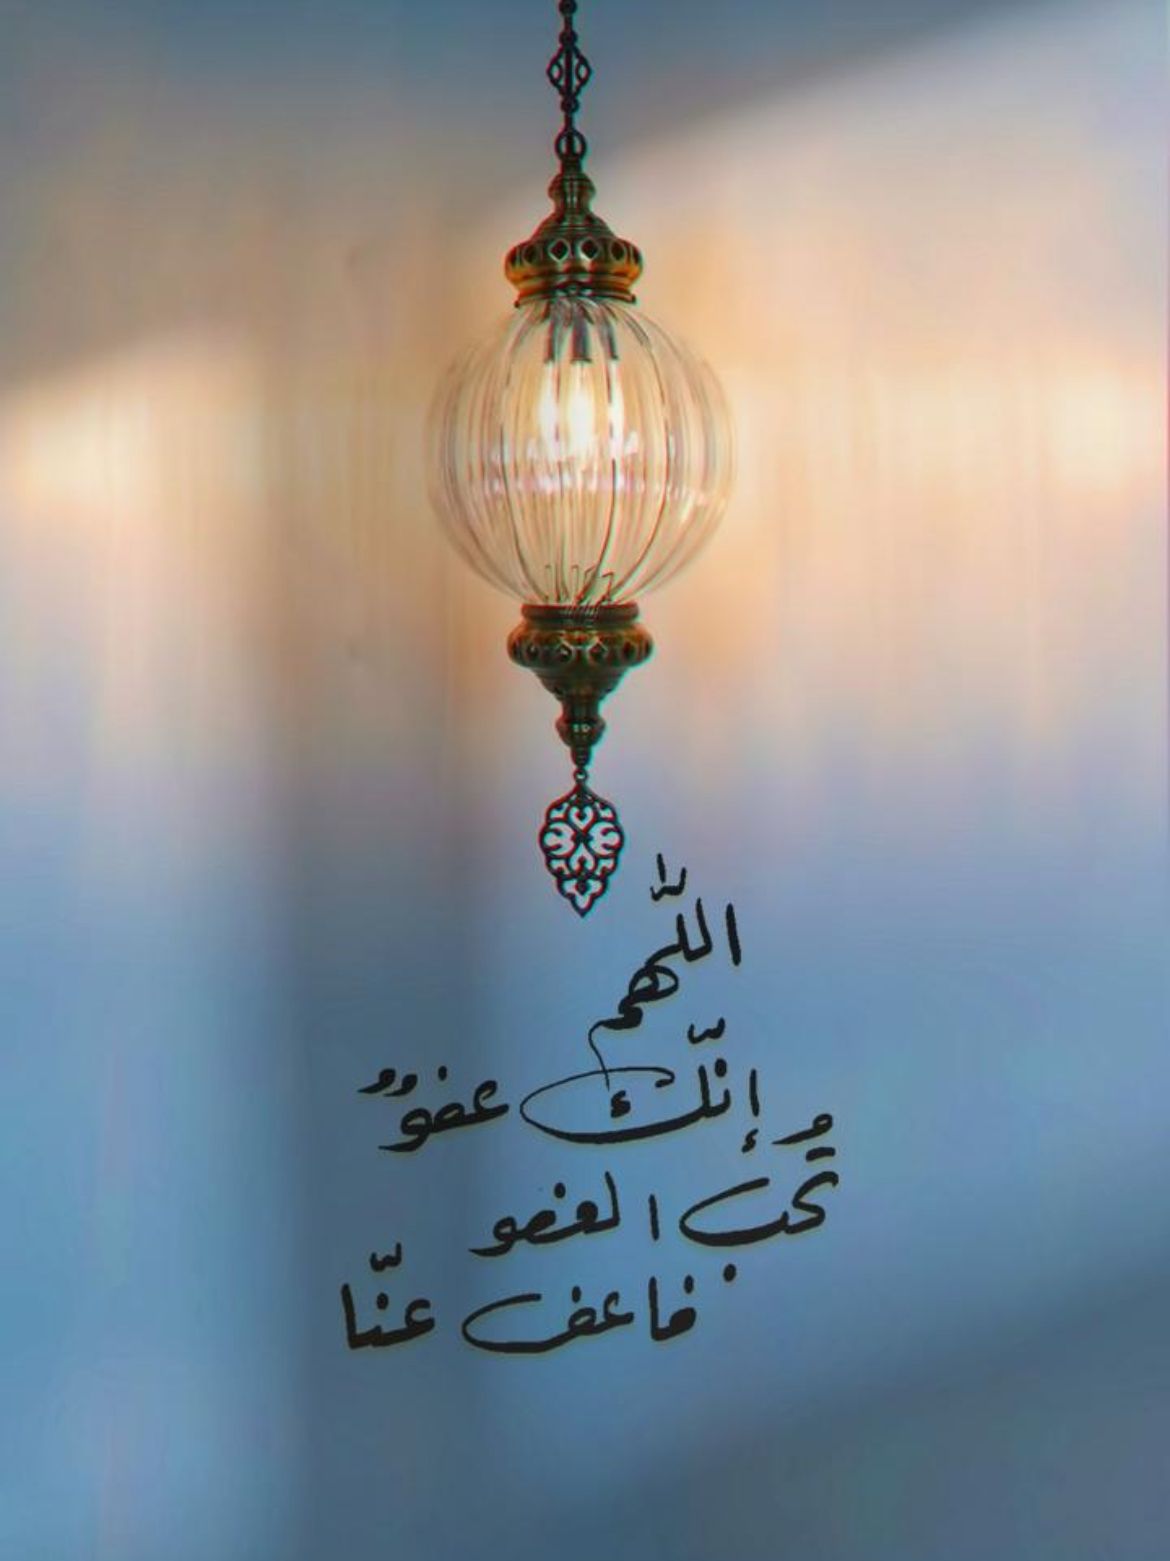 اللّٰهم
إنّك عفوٌّ
تحب العفو
فاعف عنّا